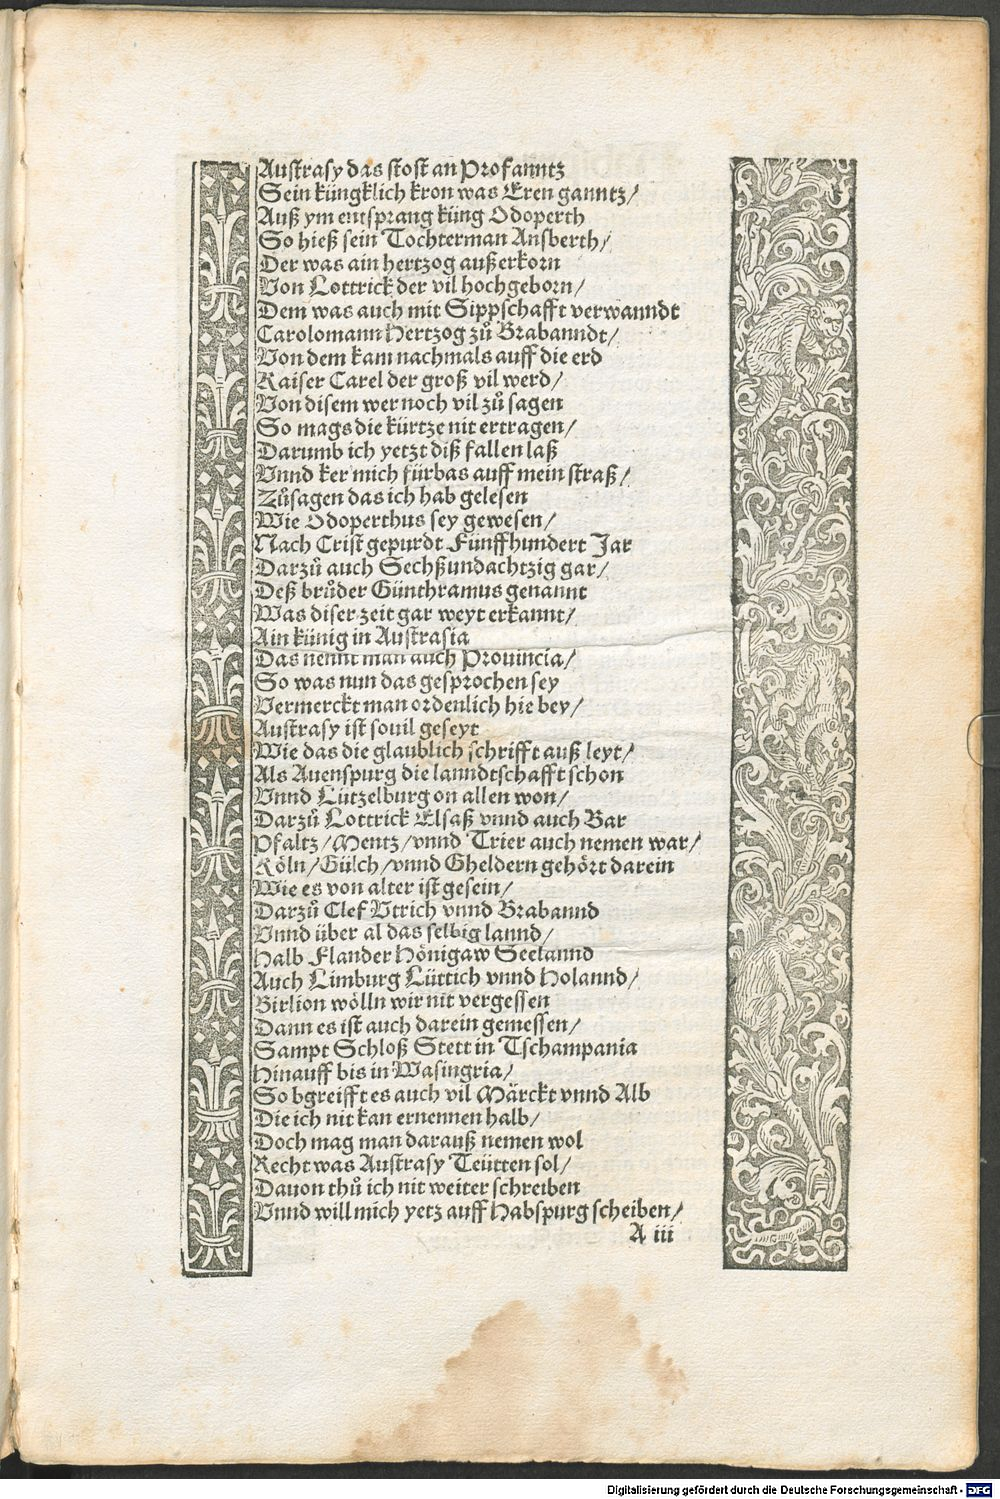 Austrasy das stost an Profanntz
Sein küngklich kron was Eren ganntz/
Auß ym entsprang küng Odoperth
So hieß sein Tochterman Ansberth/
Der was ain hertzog außerkorn
Von Lottrick der vil hochgeborn/
Dem was auch mit Sippschafft verwanndt
Carolomann Hertzog zů Brabanndt/
Von dem kam nachmals auff die erd
Kaiser Carel der groß vil werd/
Von disem wer noch vil zů sagen
So mags die kürtze nit ertragen/
Darumb ich yetzt diß fallen laß
Vnnd ker mich fürbas auff mein straß/
Zůsagen das ich hab gelesen
Wie Odoperthus sey gewesen/
Nach Crist gepurdt Fünffhundert Jar
Darzů auch Sechßundachtzig gar/
Deß brůder Günthramus genannt
Was diser zeit gar weyt erkannt/
Ain künig in Austrasia
Das nennt man auch Prouincia/
So was nun das gesprochen sey
Vermerckt man ordenlich hie bey/
Austrasy ist souil geseyt
Wie das die glaublich schrifft auß leyt/
Als Auenspurg die lanndtschafft schon
Vnnd Lützelburg on allen won/
Darzů Lottrick Elsaß vnnd auch Bar
Pfaltz/Mentz/vnnd Trier auch nemen war/
Köln/Gülch/vnnd Gheldern gehört darein
Wie es von alter ist gesein/
Darzů Clef Vtrich vnnd Brabannd
Vnnd über al das selbig lannd/
Halb Flander Hönigaw Seelannd
Auch Limburg Lüttich vnnd Holannd/
Birlion wölln wir nit vergessen
Dann es ist auch darein gemessen/
Sampt Schloß Stett in Tschampania
Hinauff bis in Wasingria/
So bgreifft es auch vil Märckt vnnd Alb
Die ich nit kan ernennen halb/
Doch mag man darauß nemen wol
Recht was Austrasy Teütten sol/
Dauon thů ich nit weiter schreiben
Vnnd will mich yetz auff Habspurg scheiben/
A iii
Digitalisierung gefördert durch die Deutsche Forschungsgemeinschaft - DFG